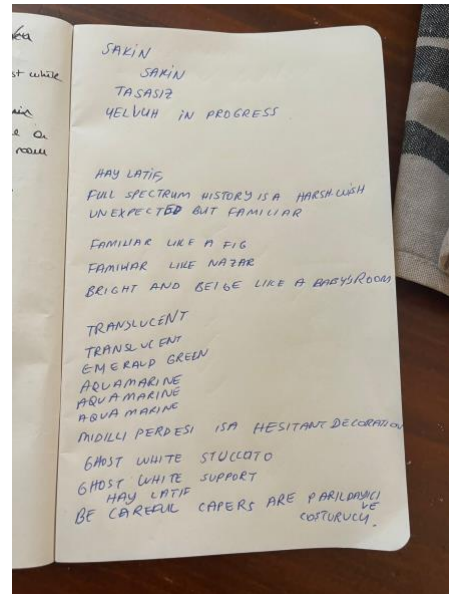 st white
room
SAKİN
SAKİN
TASASIZ
YELVUH İN PROGRESS
HAY LATİF,
FULL SPECTRUM HISTORY IS A HARSH WISH
UNEXPECTED BUT FAMILIAR
FAMILIAR LIKE A FIG
FAMILIAR LIKE NAZAR
BRIGHT AND BEIGE LIKE A BABY'S ROOM
TRANSLUCENT
TRANSLUCENT
EMERALD GREEN
AQUAMARINE
AQUAMARINE
AQUA MARINE
MIDILLI PERDESI ISA HESITANT DECORATION
GHOST WHITE STUCCOTO
GHOST WHITE SUPPORT
HAY LATIF
BE CAREFUL CAPERS ARE PARILDAYICI
VE
COSTURUCU.